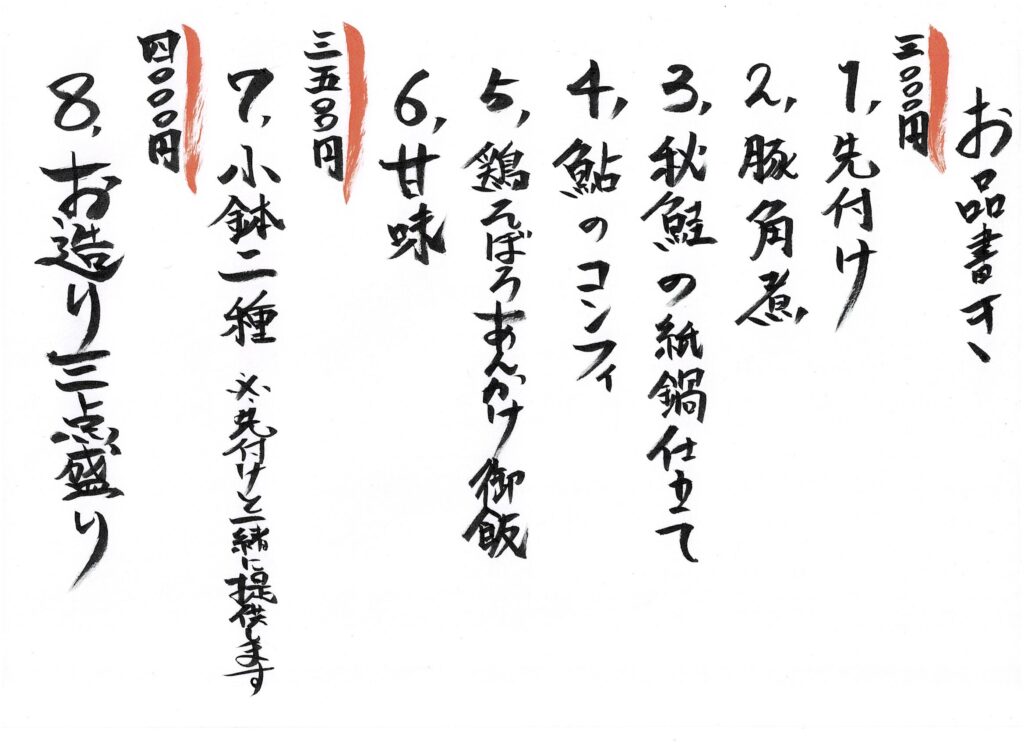 お品書き
三〇〇〇円
1,先付け
2,豚角煮
3,秋鮭の紙鍋仕立て
4,鮎のコンフィ
5,鶏そぼろあんかけ御飯
6,甘味
三五〇〇円
7,小鉢二種 ※先付けと一緒に提供します
四〇〇〇円
8,お造り三点盛り